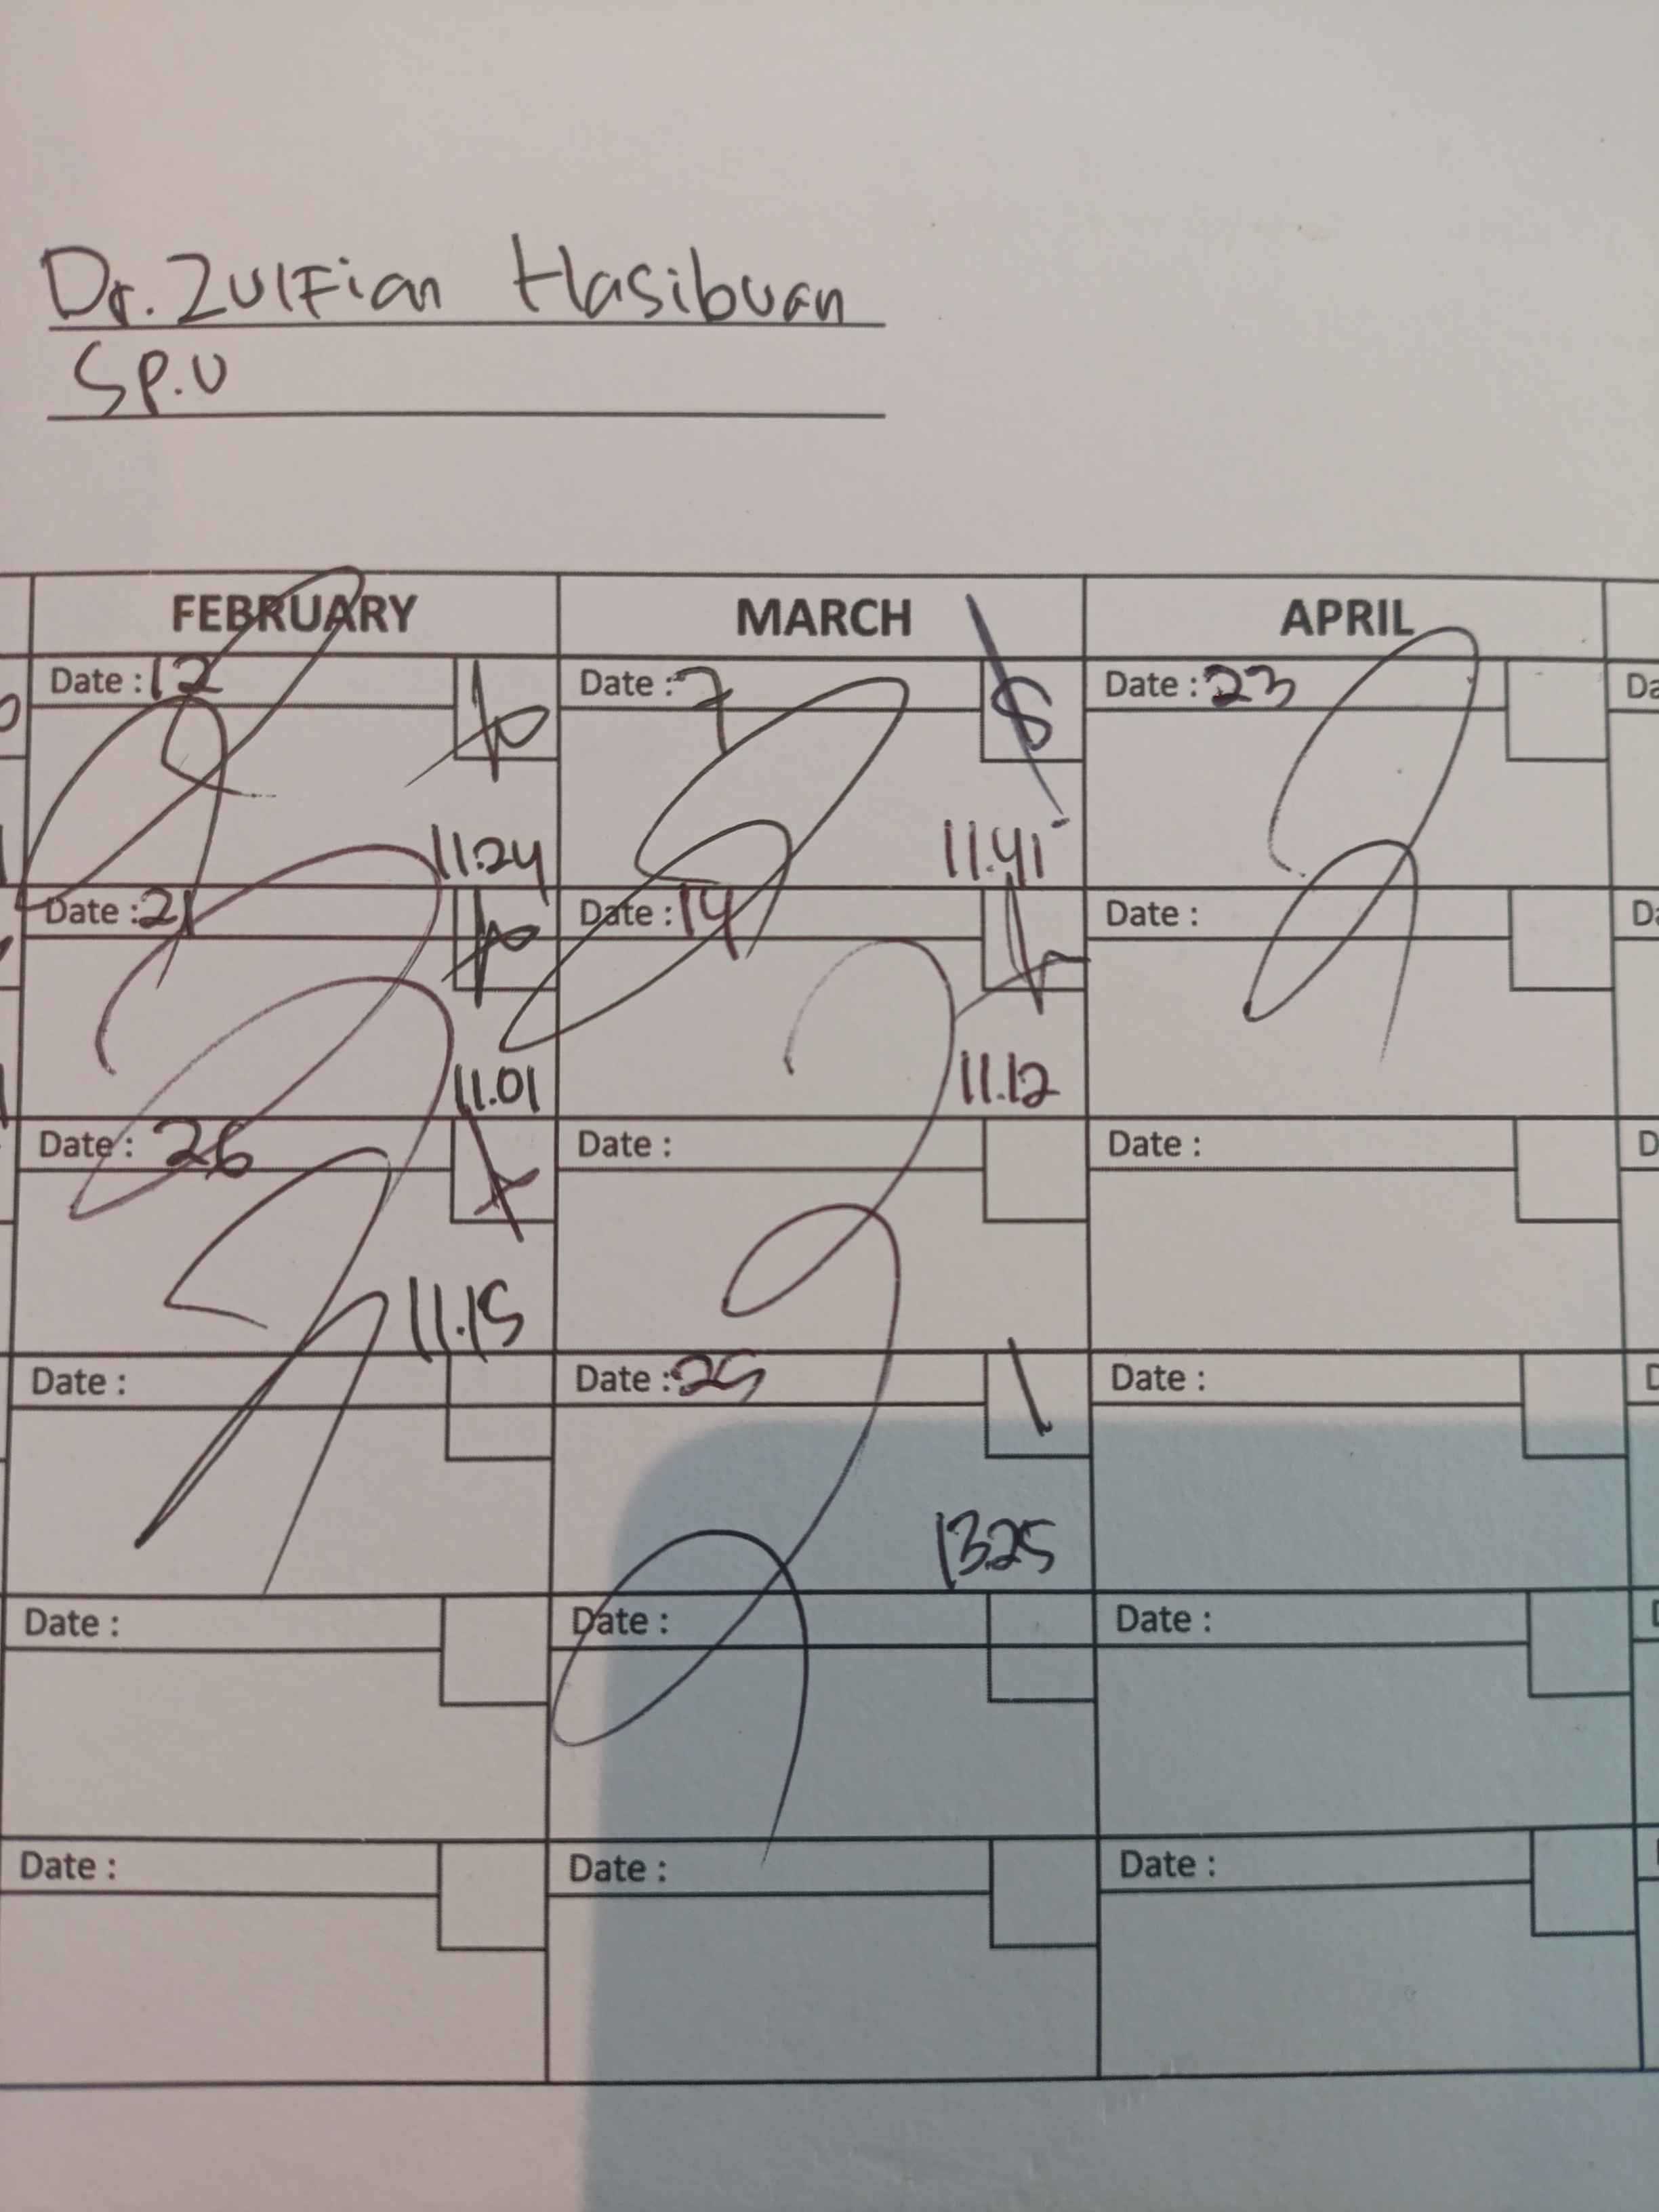 Dr. Zulfian Hasibuan
Sp.U
FEBRUARY MARCH APRIL
Date : 12 Date : 7 Date : 23 Da
11.24 11.41
Date : 21 Date : 14 Date : Da
11.01 11.12
Date : 26 Date : Date : D
11.15
Date : Date : 25 Date : D
13.25
Date : Date : Date : D
Date : Date : Date :